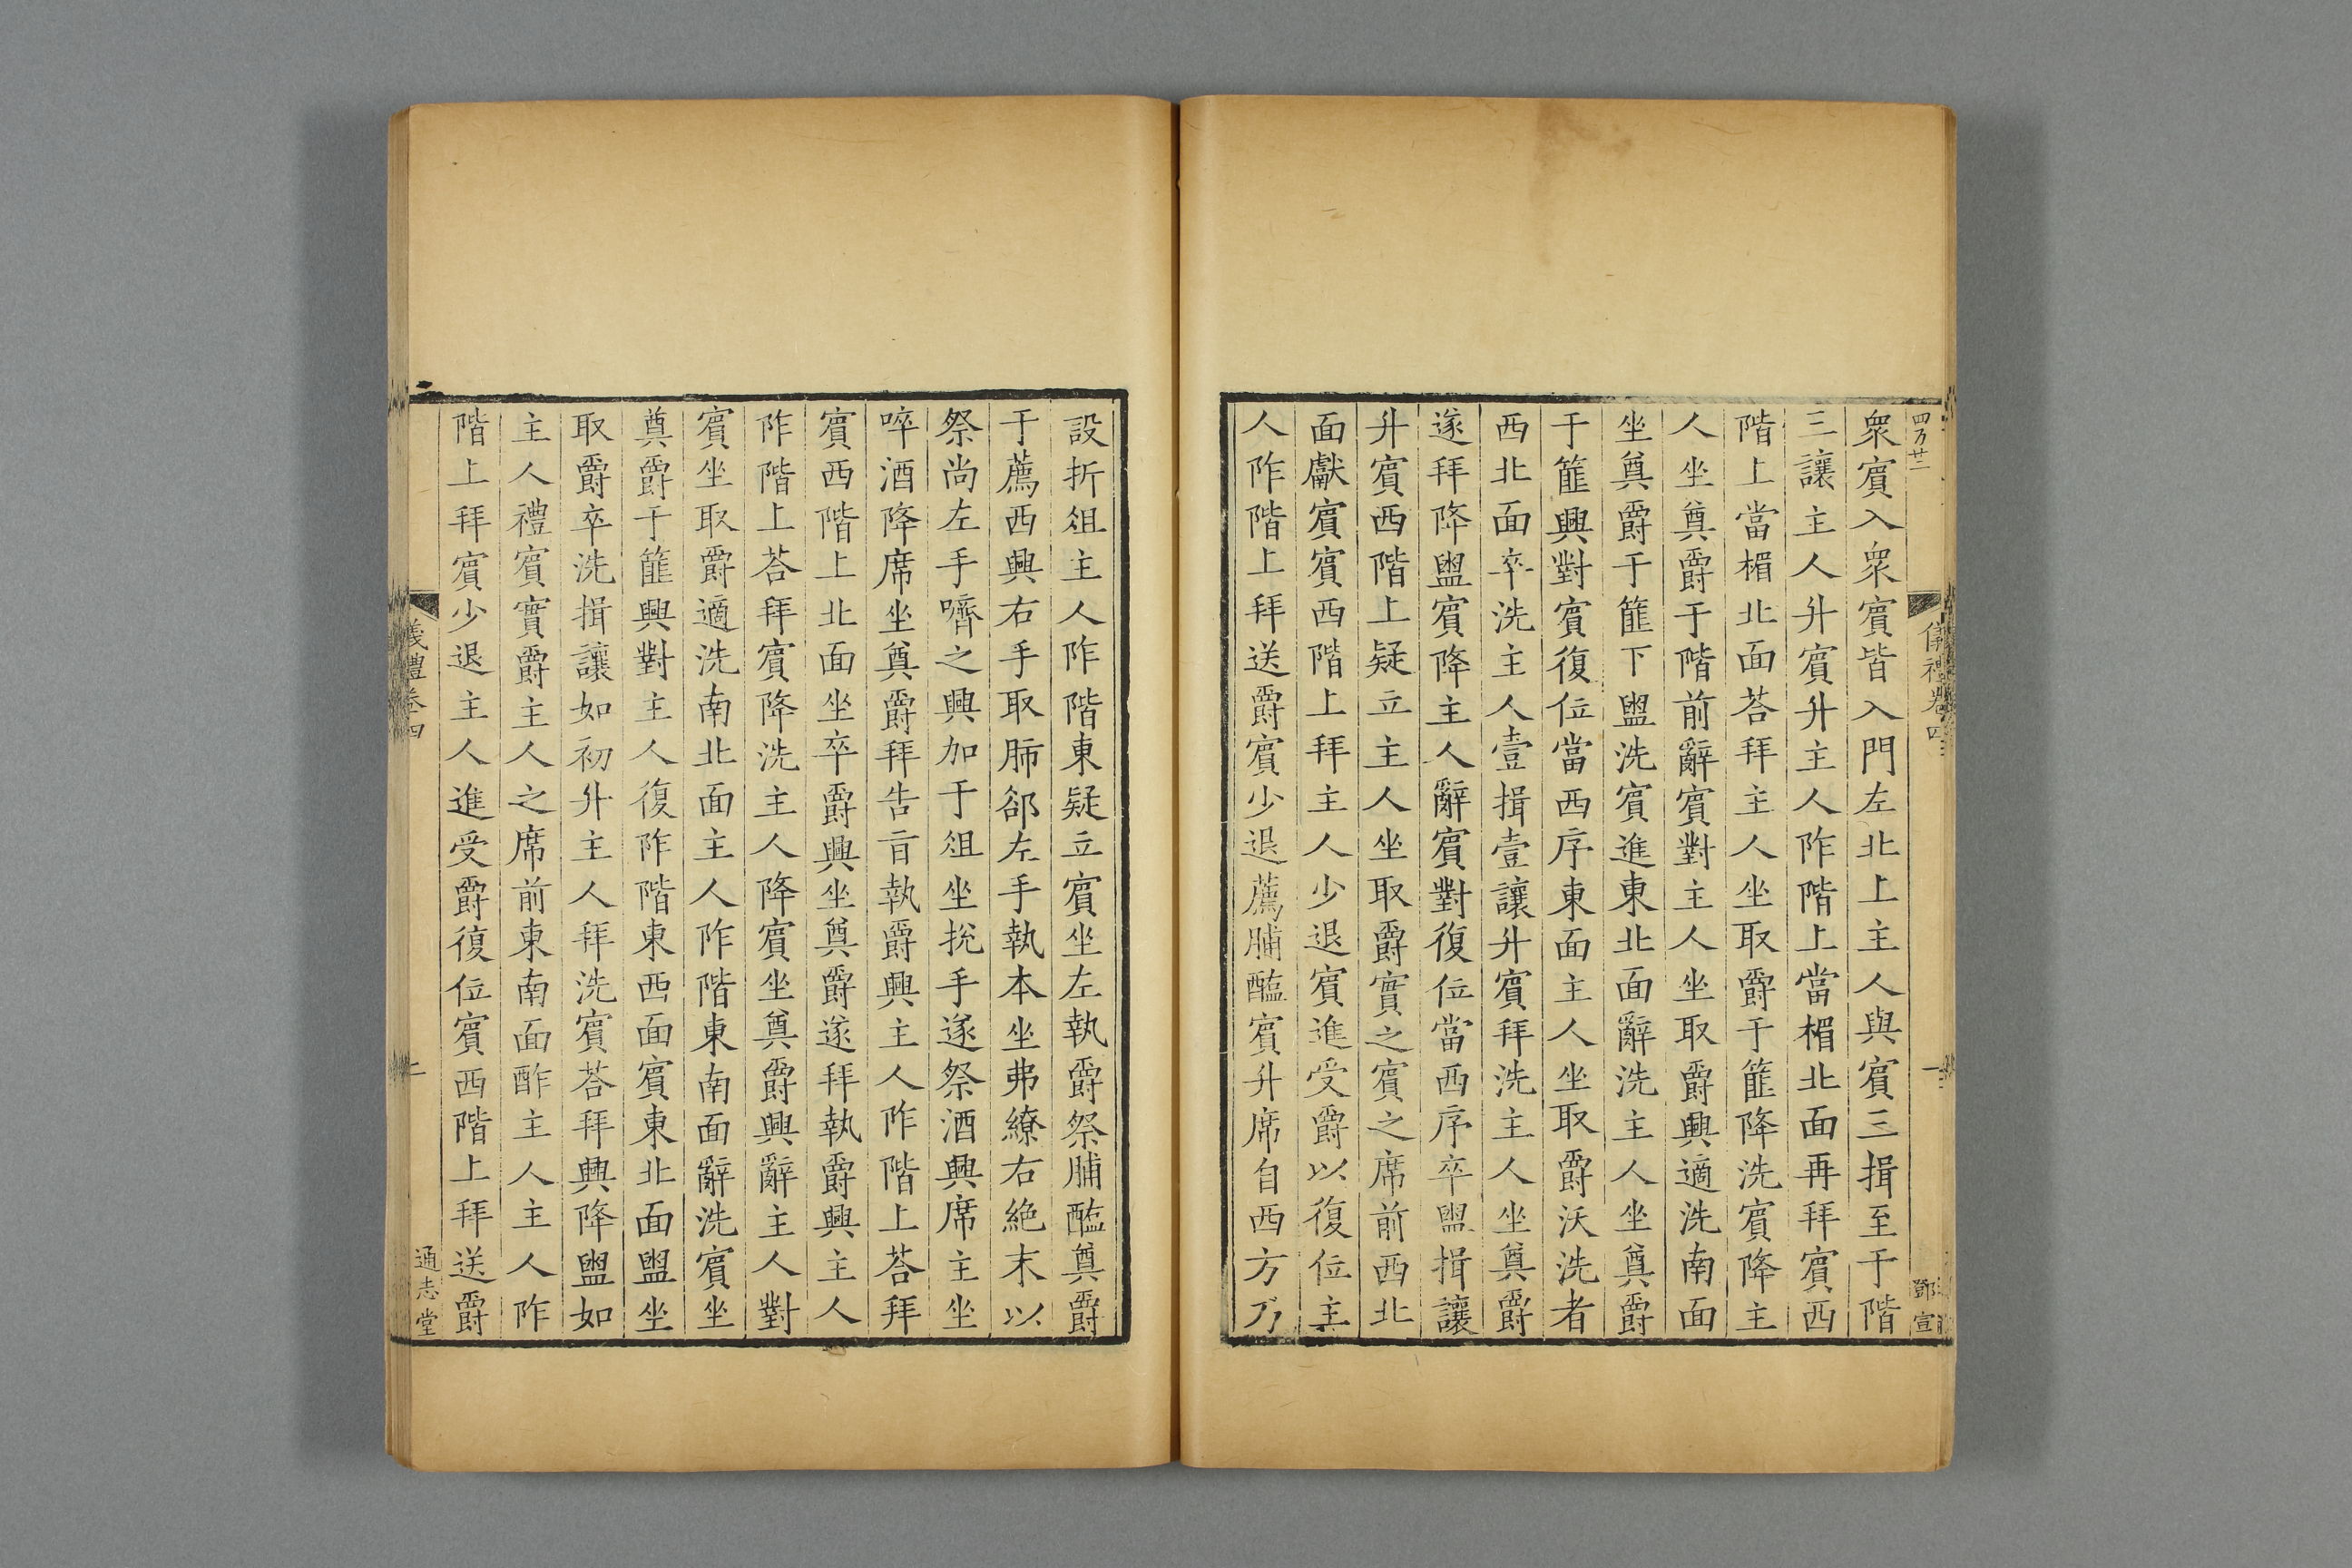 四万廿二
儀禮卷四
一
鄧宣
衆賔入衆賔皆入門左北上主人與賔三揖至于階
三讓主人升賔升主人阼階上當楣北面再拜賔西
階上當楣北面荅拜主人坐取爵于篚降洗賔降主
人坐奠爵于階前辭賔對主人坐取爵興適洗南面
坐奠爵于篚下盥洗賔進東北面辭洗主人坐奠爵
于篚興對賔復位當西序東面主人坐取爵沃洗者
西北面卒洗主人壹揖壹讓升賔拜洗主人坐奠爵
遂拜降盥賔降主人辭賔對復位當西序卒盥揖讓
升賔西階上疑立主人坐取爵實之賔之席前西北
面獻賔賔西階上拜主人少退賔進受爵以復位主
人阼階上拜送爵賔少退薦脯醢賔升席自西方乃
設折俎主人阼階東疑立賔坐左執爵祭脯醢奠爵
于薦西興右手取肺郤左手執本坐弗繚右絶末以
祭尚左手嚌之興加于俎坐挩手遂祭酒興席主坐
啐酒降席坐奠爵拜告旨執爵興主人阼階上荅拜
賔西階上北面坐卒爵興坐奠爵遂拜執爵興主人
阼階上荅拜賔降洗主人降賔坐奠爵興辭主人對
賔坐取爵適洗南北面主人阼階東南面辭洗賔坐
奠爵于篚興對主人復阼階東西面賔東北面盥坐
取爵卒洗揖讓如初升主人拜洗賔荅拜興降盥如
主人禮賔實爵主人之席前東南面酢主人主人阼
階上拜賔少退主人進受爵復位賔西階上拜送爵
儀禮卷四
二
通志堂